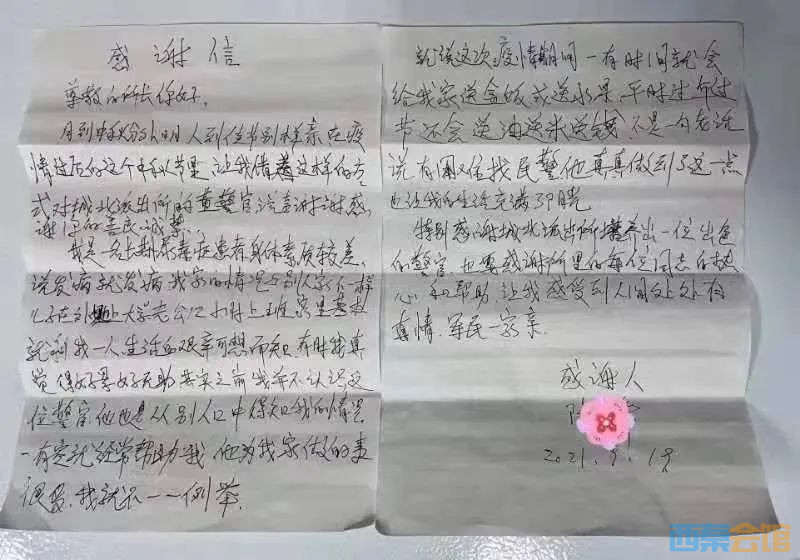 感谢信
尊敬的所长你好.
月到中秋分外明人到佳节别样亲在疫
情过后的这个中秋节里,让我借着这样的方
式对城北派出所的董警官说声谢谢感
谢你的善民诚挚.
我是一名长期尿毒症患者身体素质较差,
说发病就发病我家的情况与别人家不一样
儿子在外地上大学老公三小时上班家里基本
就剩我一人生活上艰辛可想而知有时我真
觉得好无好无助其实之前我并不认识这
位警官他也是从别人口中得知我的情况
一有空就经常帮助我,他为我家做的事
很多,我就不一一例举.
就说这次疫情期间一有时间就会
给我家送盒饭或送水果,平时过年过
节还会送油送米送钱,不是一句老话
说有困难找民警他真真做到了这一点
也让我的生活充满了阳光
特别感谢城北派出所培养出一位出色
的警官,也要感谢所里的每位同志的热
心和帮助,让我感受到人间处处有
真情.军民一家亲.
感谢人
陈
2021.9.19
西祠会馆